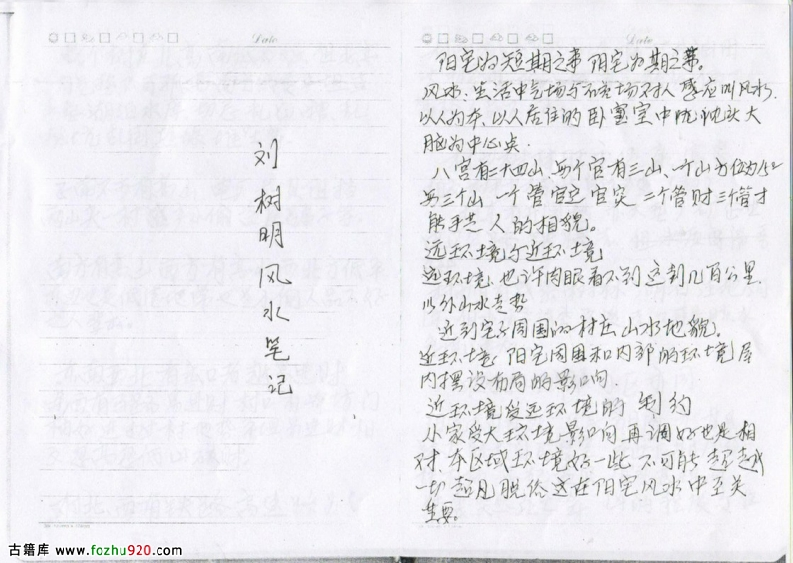 Date
刘树明风水笔记
古籍库 www.fozhu920.com
Date
阳宅为短期之 阳宅为期之
风水、生活中气场与不良场对人感应叫风水.
以人为本、以人居住的卧室室中 头大
脑为中心点.
八宫有二十四山、每个宫有三山、一个山方位为15°
每三个山、一个管官 官 二个管财 三个管才
能手艺 人的相貌。
远环境与近环境
远环境、也许肉眼看不到 这到几百公里
以外山水走势
近到宅子周围的村庄 山水地貌。
近环境 阳宅周围和内部的环境 屋
内摆设布局的影响
近环境受远环境的 制约
小家受大环境影响 再调好也是相
对、本区域环境好一些 不可能超越
超凡脱俗 这在阳宅风水中至关
重要。